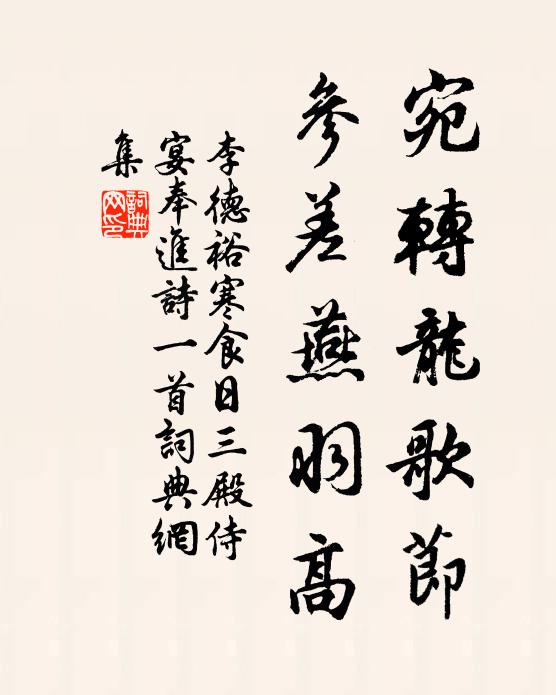 宛轉龍歌節
參差燕羽高
李德裕寒食日三殿侍
宴奉進詩一首詞典網
集
詞典網印